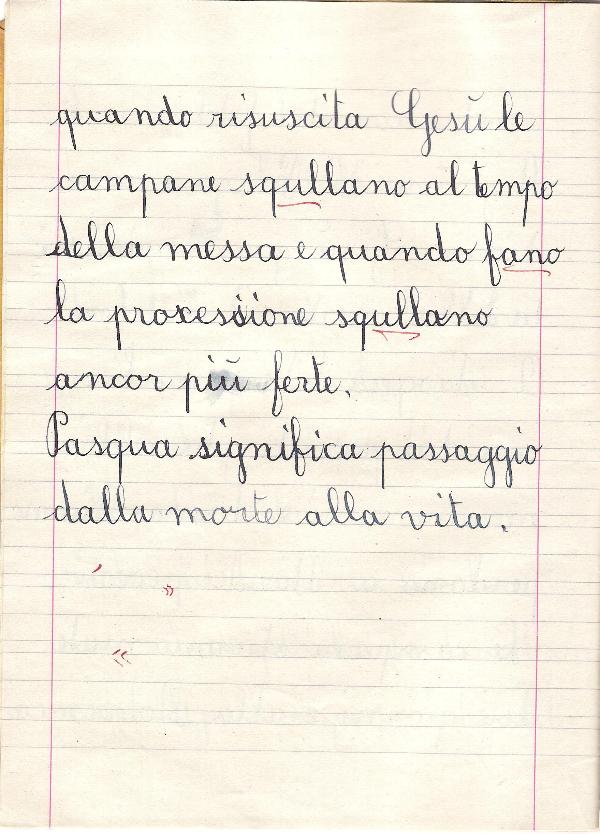 quando risuscita Gesŭ le
campane squllano al tempo
della messa e quando fano
la processione squllano
ancor piŭ ferte.
Pasqua significa passaggio
dalla morte alla vita.